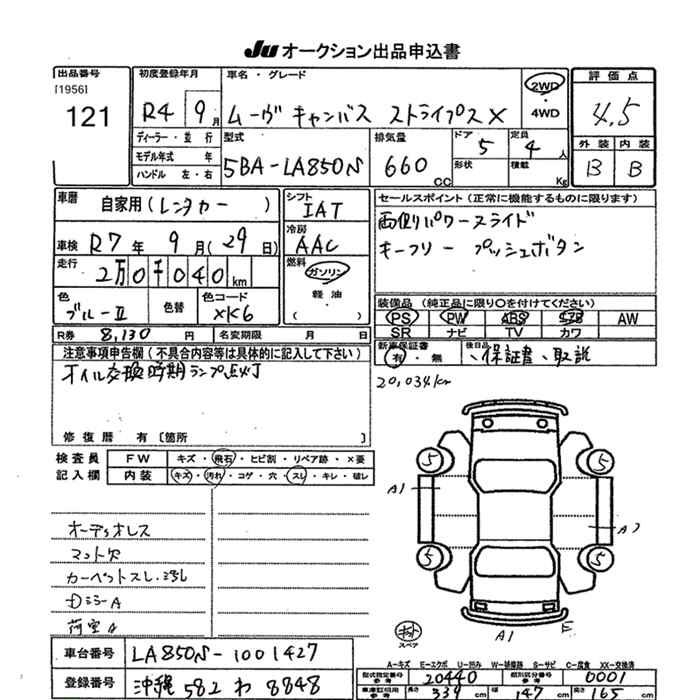 JU オークション出品申込書
出品番号
[1956]
121
初度登録年月
R4年 9月
ディーラー・並行
モデル年式 年
ハンドル 左・右
車名・グレード
ムーヴ キャンバス ストライプス X
2WD
・
4WD
評価点
4.5
外装 内装
B B
型式
5BA-LA850S
排気量
660 CC
ドア 5
形状
定員 4人
積載 Kg
車歴
自家用(レンタカー)
車検 R7年 9月(29日)
走行
2万0千040km
色
ブルーII
色替
色コード
XK6
シフト
IAT
冷房
AAC
燃料
ガソリン
軽油
( )
セールスポイント (正常に機能するものに限ります)
両側パワースライド
キーフリー プッシュボタン
装備品 (純正品に限り○を付けてください)
PS PW ABS エアB AW
SR ナビ TV カワ
新車保証書
有・無
後日品
、保証書、取説
R券 8,130円
名変期限 月 日
注意事項申告欄(不具合内容等は具体的に記入して下さい)
オイル交換時期ランプ点灯
修復歴 有〔箇所 〕
20,034km
検査員
記入欄
FW キズ・飛石・ヒビ割・リペア跡・×要
内装 キズ・汚れ・コゲ・穴・スレ・キレ・破レ
オーディオレス
マット欠
カーペットスレ・汚れ
Dミラー A
荷室キ
5 5
A1
A2
5 5
キット
スペア
A1
E
車台番号 LA850S-1001427
登録番号 沖縄 582 わ 8848
A-キズ E-エクボ U-凹み W-補修跡 S-サビ C-腐食 XX-交換済
型式指定番号 参考 20440
類別区分番号 参考 0001
車庫証明用 参考 長さ 339 cm 幅 147 cm 高さ 165 cm